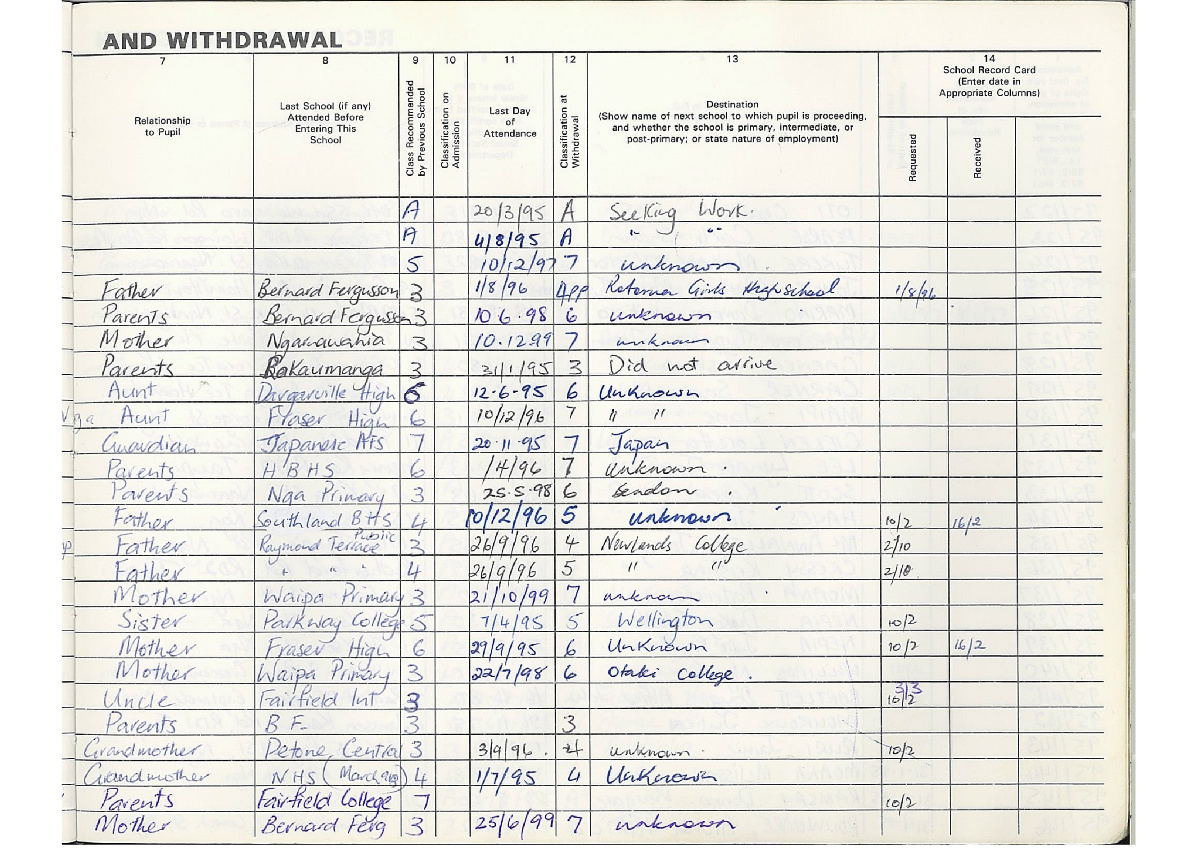 AND WITHDRAWAL
7 8 9 10 11 12 13 14
Relationship to Pupil
Last School (if any) Attended Before Entering This School
Class Recommended by Previous School
Classification on Admission
Last Day of Attendance
Classification at Withdrawal
Destination
(Show name of next school to which pupil is proceeding, and whether the school is primary, intermediate, or post-primary; or state nature of employment)
School Record Card
(Enter date in Appropriate Columns)
Requested
Received
A 20/3/95 A Seeking Work.
A 4/8/95 A " " "
5 10/12/97 7 unknown
Father Bernard Fergusson 3 1/8/96 App Girls High school 1/8/96
Parents Bernard Fergusson 3 10 6.98 6 unknown
Mother 3 10.12.99 7 unknown
Parents Rakaumanga 3 31/1/95 3 Did not arrive
Aunt Dargarville High 6 12.6.95 6 Unknown
Aunt Fraser High 6 10/12/96 7 " "
Guardian Japanese 7 20.11.95 7 Japan
Parents HBHS 6 /4/96 7 Unknown.
Parents Nga Primary 3 25.5.98 6
Father Southland BHS 4 10/12/96 5 unknown 10/2 16/2
Father Raymond Terrace Public 3 26/9/96 4 Newlands College 2/10
Father " " " 4 26/9/96 5 " " 2/10
Mother Waipa Primary 3 21/10/99 7 unknown
Sister Parkway College 5 7/4/95 5 Wellington 10/2
Mother Fraser High 6 29/9/95 6 UnKnown 10/2 16/2
Mother Waipa Primary 3 22/7/98 6 Otaki college.
Uncle Fairfield Int 3 3/3 10/2
Parents B F 3 3
Grandmother Petone Central 3 3/9/96. 4 unknown. 10/2
Grandmother NHS 4 1/7/95 4 UnKnown
Parents Fairfield College 7 10/2
Mother Bernard Ferg 3 25/6/99 7 unknown